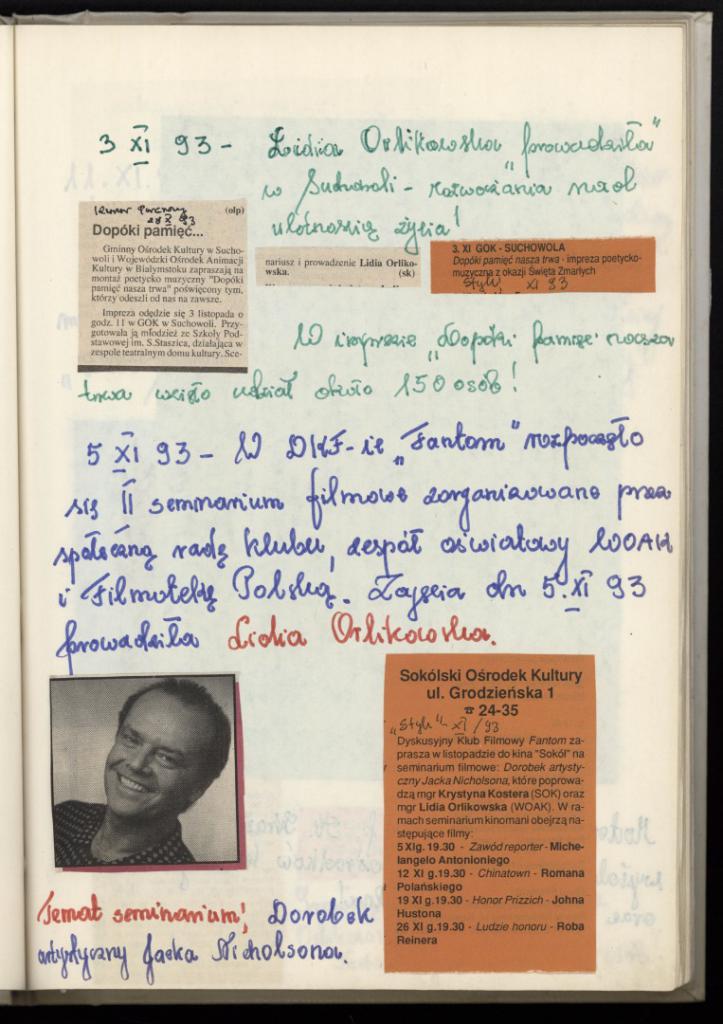 3 XI 93 - Lidia Orlikowska "prowadziła"
w Suchowoli - rozważania nad
ulotnością życia!
Kurier Poranny
28 X 93
(olp)
Dopóki pamięć...
Gminny Ośrodek Kultury w Sucho-
woli i Wojewódzki Ośrodek Animacji
Kultury w Białymstoku zapraszają na
montaż poetycko muzyczny "Dopóki
pamięć nasza trwa" poświęcony tym,
którzy odeszli od nas na zawsze.
Impreza odędzie się 3 listopada o
godz. 11 w GOK w Suchowoli. Przy-
gotowała ją młodzież ze Szkoły Pod-
stawowej im. S.Staszica, działająca w
zespole teatralnym domu kultury. Sce-
nariusz i prowadzenie Lidia Orliko-
wska. (sk)
3. XI GOK - SUCHOWOLA
Dopóki pamięć nasza trwa - impreza poetycko-
muzyczna z okazji Święta Zmarłych
Styk XI 93
W imprezie "Dopóki pamięć nasza
trwa wzięło udział około 150 osób!
5 XI 93 - W DKF-ie "Fantom" rozpoczęło
się II seminarium filmowe zorganizowane przez
społeczną radę klubu, zespół oświatowy WOAK
i Filmotekę Polską. Zajęcia dn 5. XI 93
prowadziła Lidia Orlikowska.
Sokólski Ośrodek Kultury
ul. Grodzieńska 1
☎ 24-35
"Styk" XI/93
Dyskusyjny Klub Filmowy Fantom za-
prasza w listopadzie do kina "Sokół" na
seminarium filmowe: Dorobek artysty-
czny Jacka Nicholsona, które poprowa-
dzą mgr Krystyna Kostera (SOK) oraz
mgr Lidia Orlikowska (WOAK). W ra-
mach seminarium kinomani obejrzą na-
stępujące filmy:
5 XIg. 19.30 - Zawód reporter - Miche-
langelo Antonioniego
12 XI g.19.30 - Chinatown - Romana
Polańskiego
19 XI g.19.30 - Honor Prizzich - Johna
Hustona
26 XI g.19.30 - Ludzie honoru - Roba
Reinera
Temat seminarium! Dorobek
artystyczny Jacka Nicholsona.